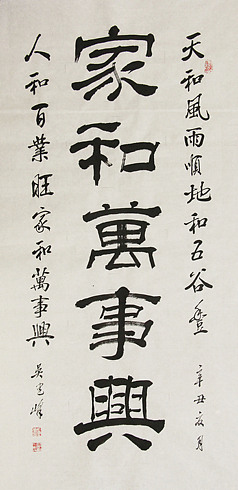 天和風雨順地和五谷登
辛丑夏月
家和萬事興
人和百業旺家和萬事興